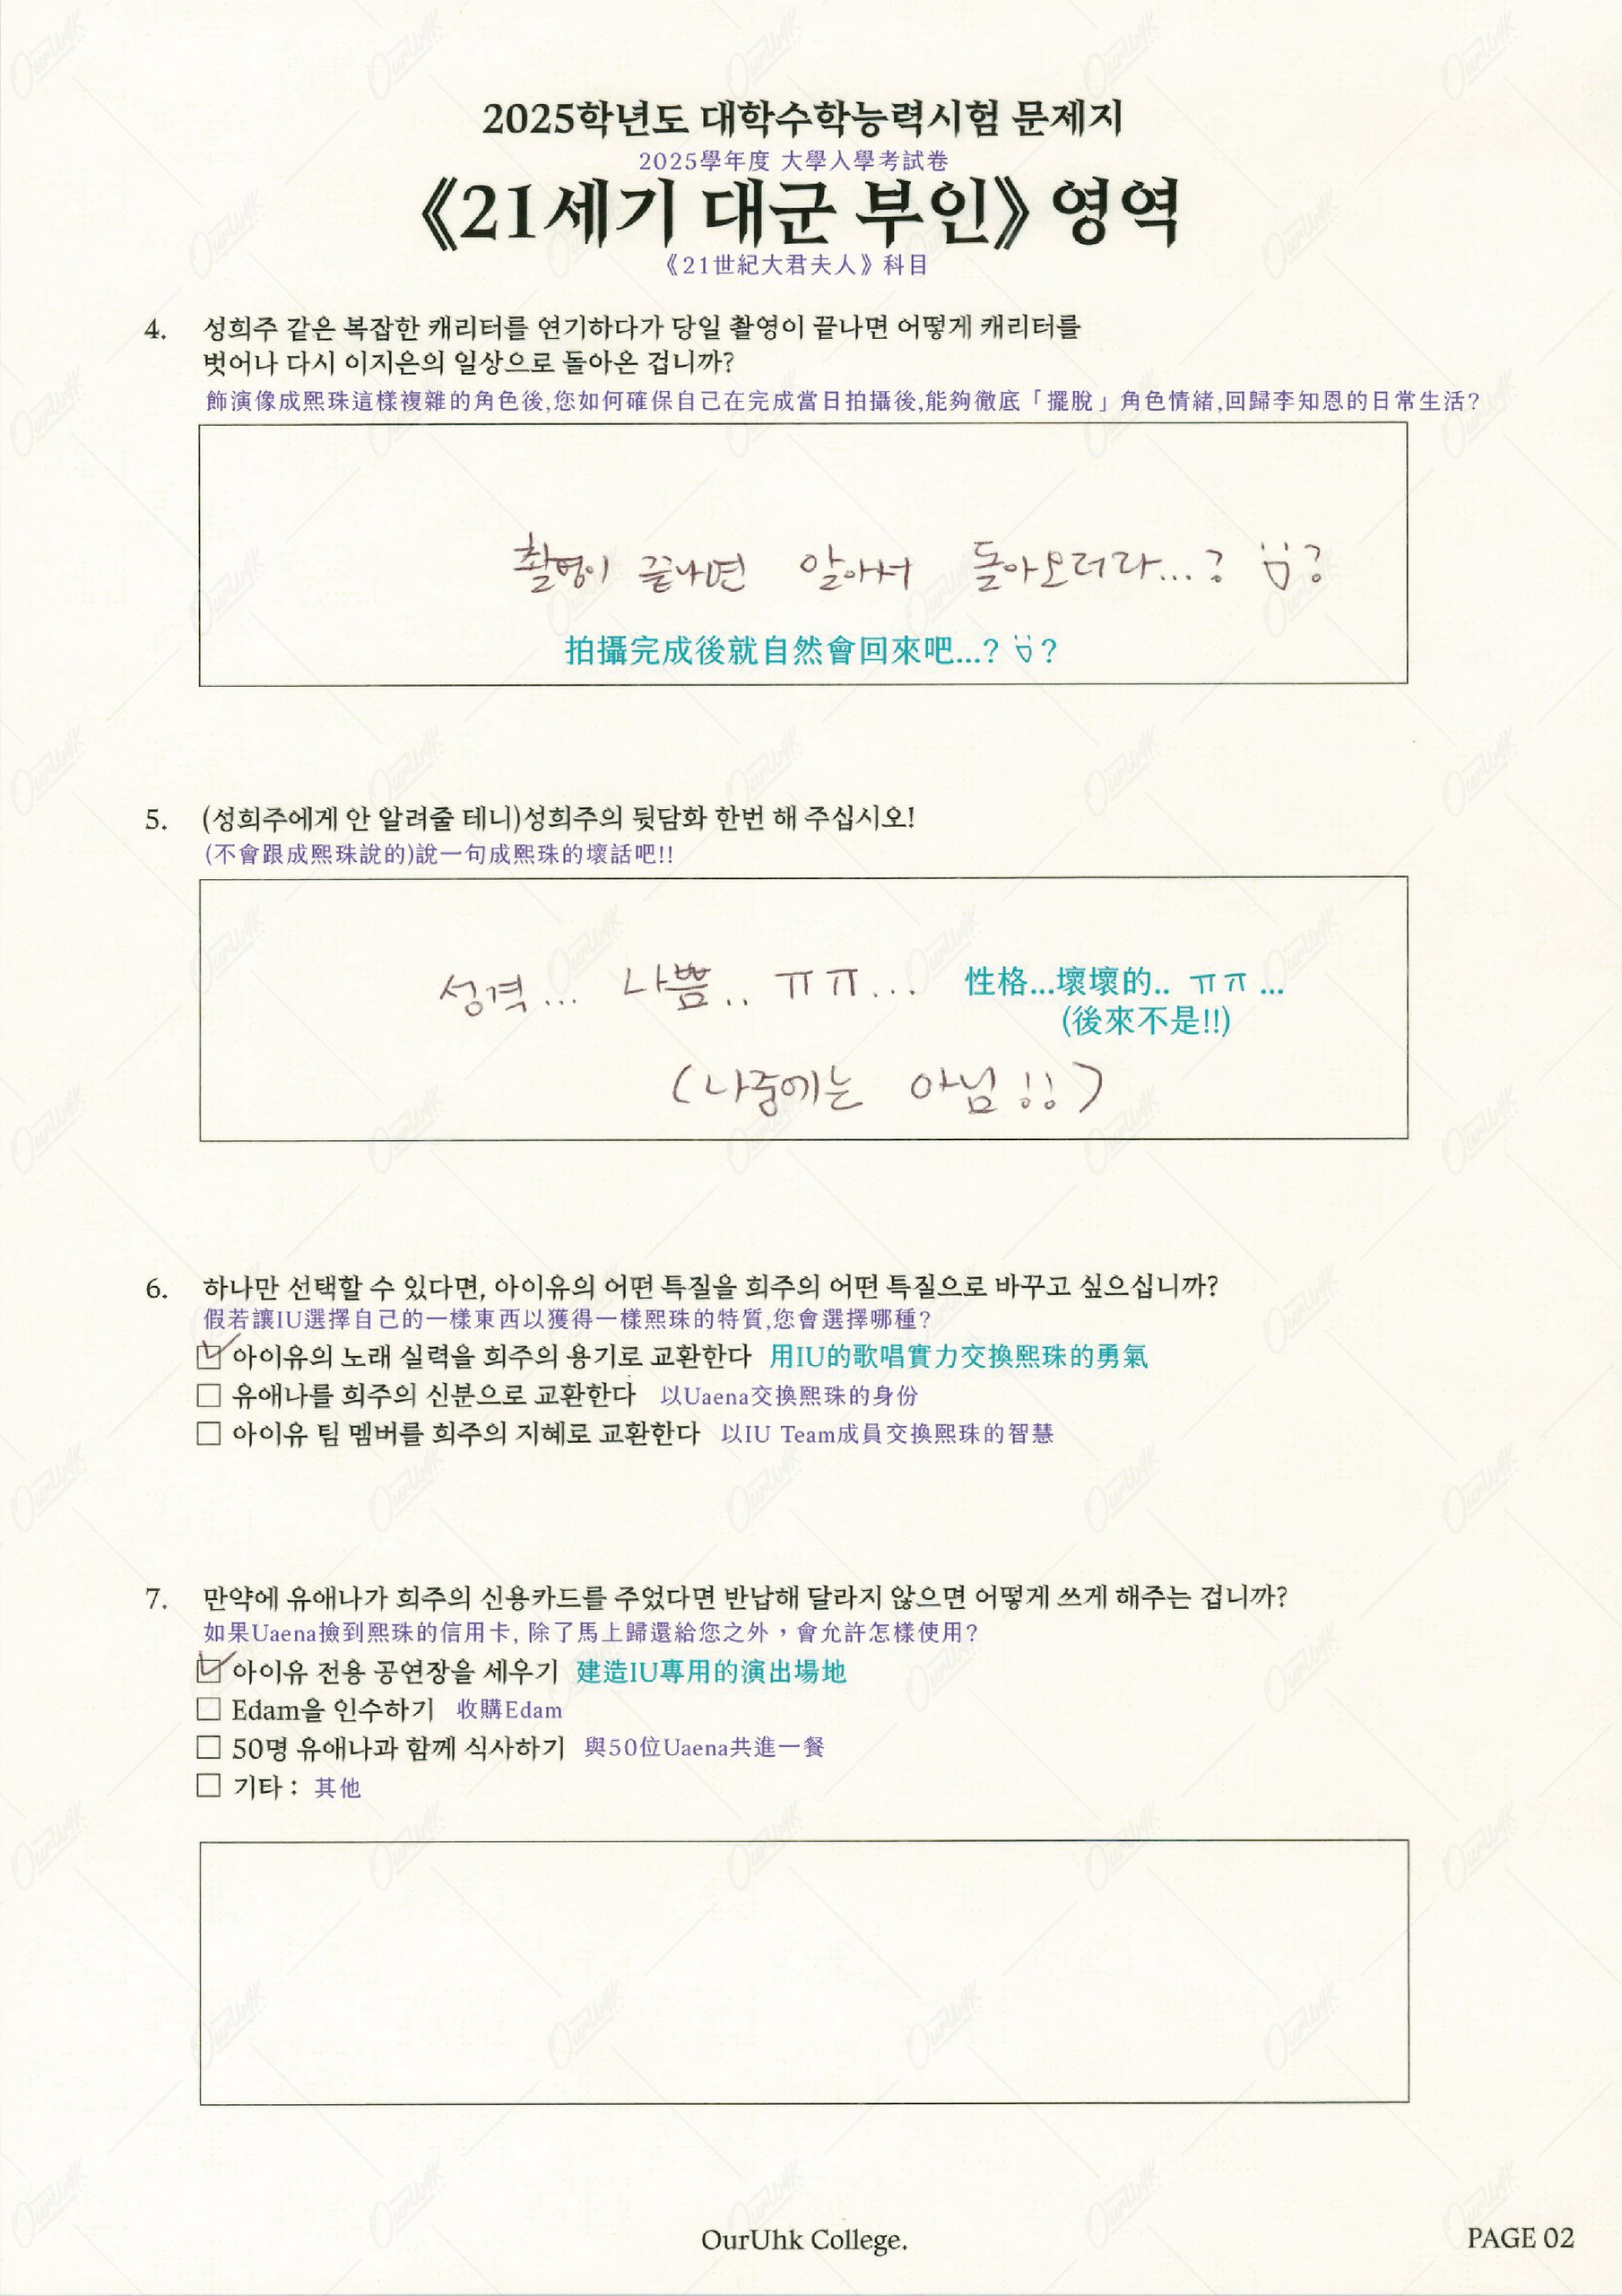 2025학년도 대학수학능력시험 문제지
2025學年度 大學入學考試卷
《21세기 대군 부인》 영역
《21世紀大君夫人》科目
4. 성희주 같은 복잡한 캐리터를 연기하다가 당일 촬영이 끝나면 어떻게 캐리터를
벗어나 다시 이지은의 일상으로 돌아온 겁니까?
飾演像成熙珠這樣複雜的角色後,您如何確保自己在完成當日拍攝後,能夠徹底「擺脫」角色情緒,回歸李知恩的日常生活?
촬영이 끝나면 알아서 돌아오더라...? ?
拍攝完成後就自然會回來吧...? ?
5. (성희주에게 안 알려줄 테니)성희주의 뒷담화 한번 해 주십시오!
(不會跟成熙珠說的)說一句成熙珠的壞話吧!!
성격... 나쁨.. ㅠㅠ... 性格...壞壞的.. ㅠㅠ ...
(後來不是!!)
(나중에는 아님!!)
6. 하나만 선택할 수 있다면, 아이유의 어떤 특질을 희주의 어떤 특질으로 바꾸고 싶으십니까?
假若讓IU選擇自己的一樣東西以獲得一樣熙珠的特質,您會選擇哪種?
아이유의 노래 실력을 희주의 용기로 교환한다 用IU的歌唱實力交換熙珠的勇氣
유애나를 희주의 신분으로 교환한다 以Uaena交換熙珠的身份
아이유 팀 멤버를 희주의 지혜로 교환한다 以IU Team成員交換熙珠的智慧
7. 만약에 유애나가 희주의 신용카드를 주었다면 반납해 달라지 않으면 어떻게 쓰게 해주는 겁니까?
如果Uaena撿到熙珠的信用卡, 除了馬上歸還給您之外，會允許怎樣使用?
아이유 전용 공연장을 세우기 建造IU專用的演出場地
Edam을 인수하기 收購Edam
50명 유애나과 함께 식사하기 與50位Uaena共進一餐
기타 : 其他
OurUhk College.
PAGE 02